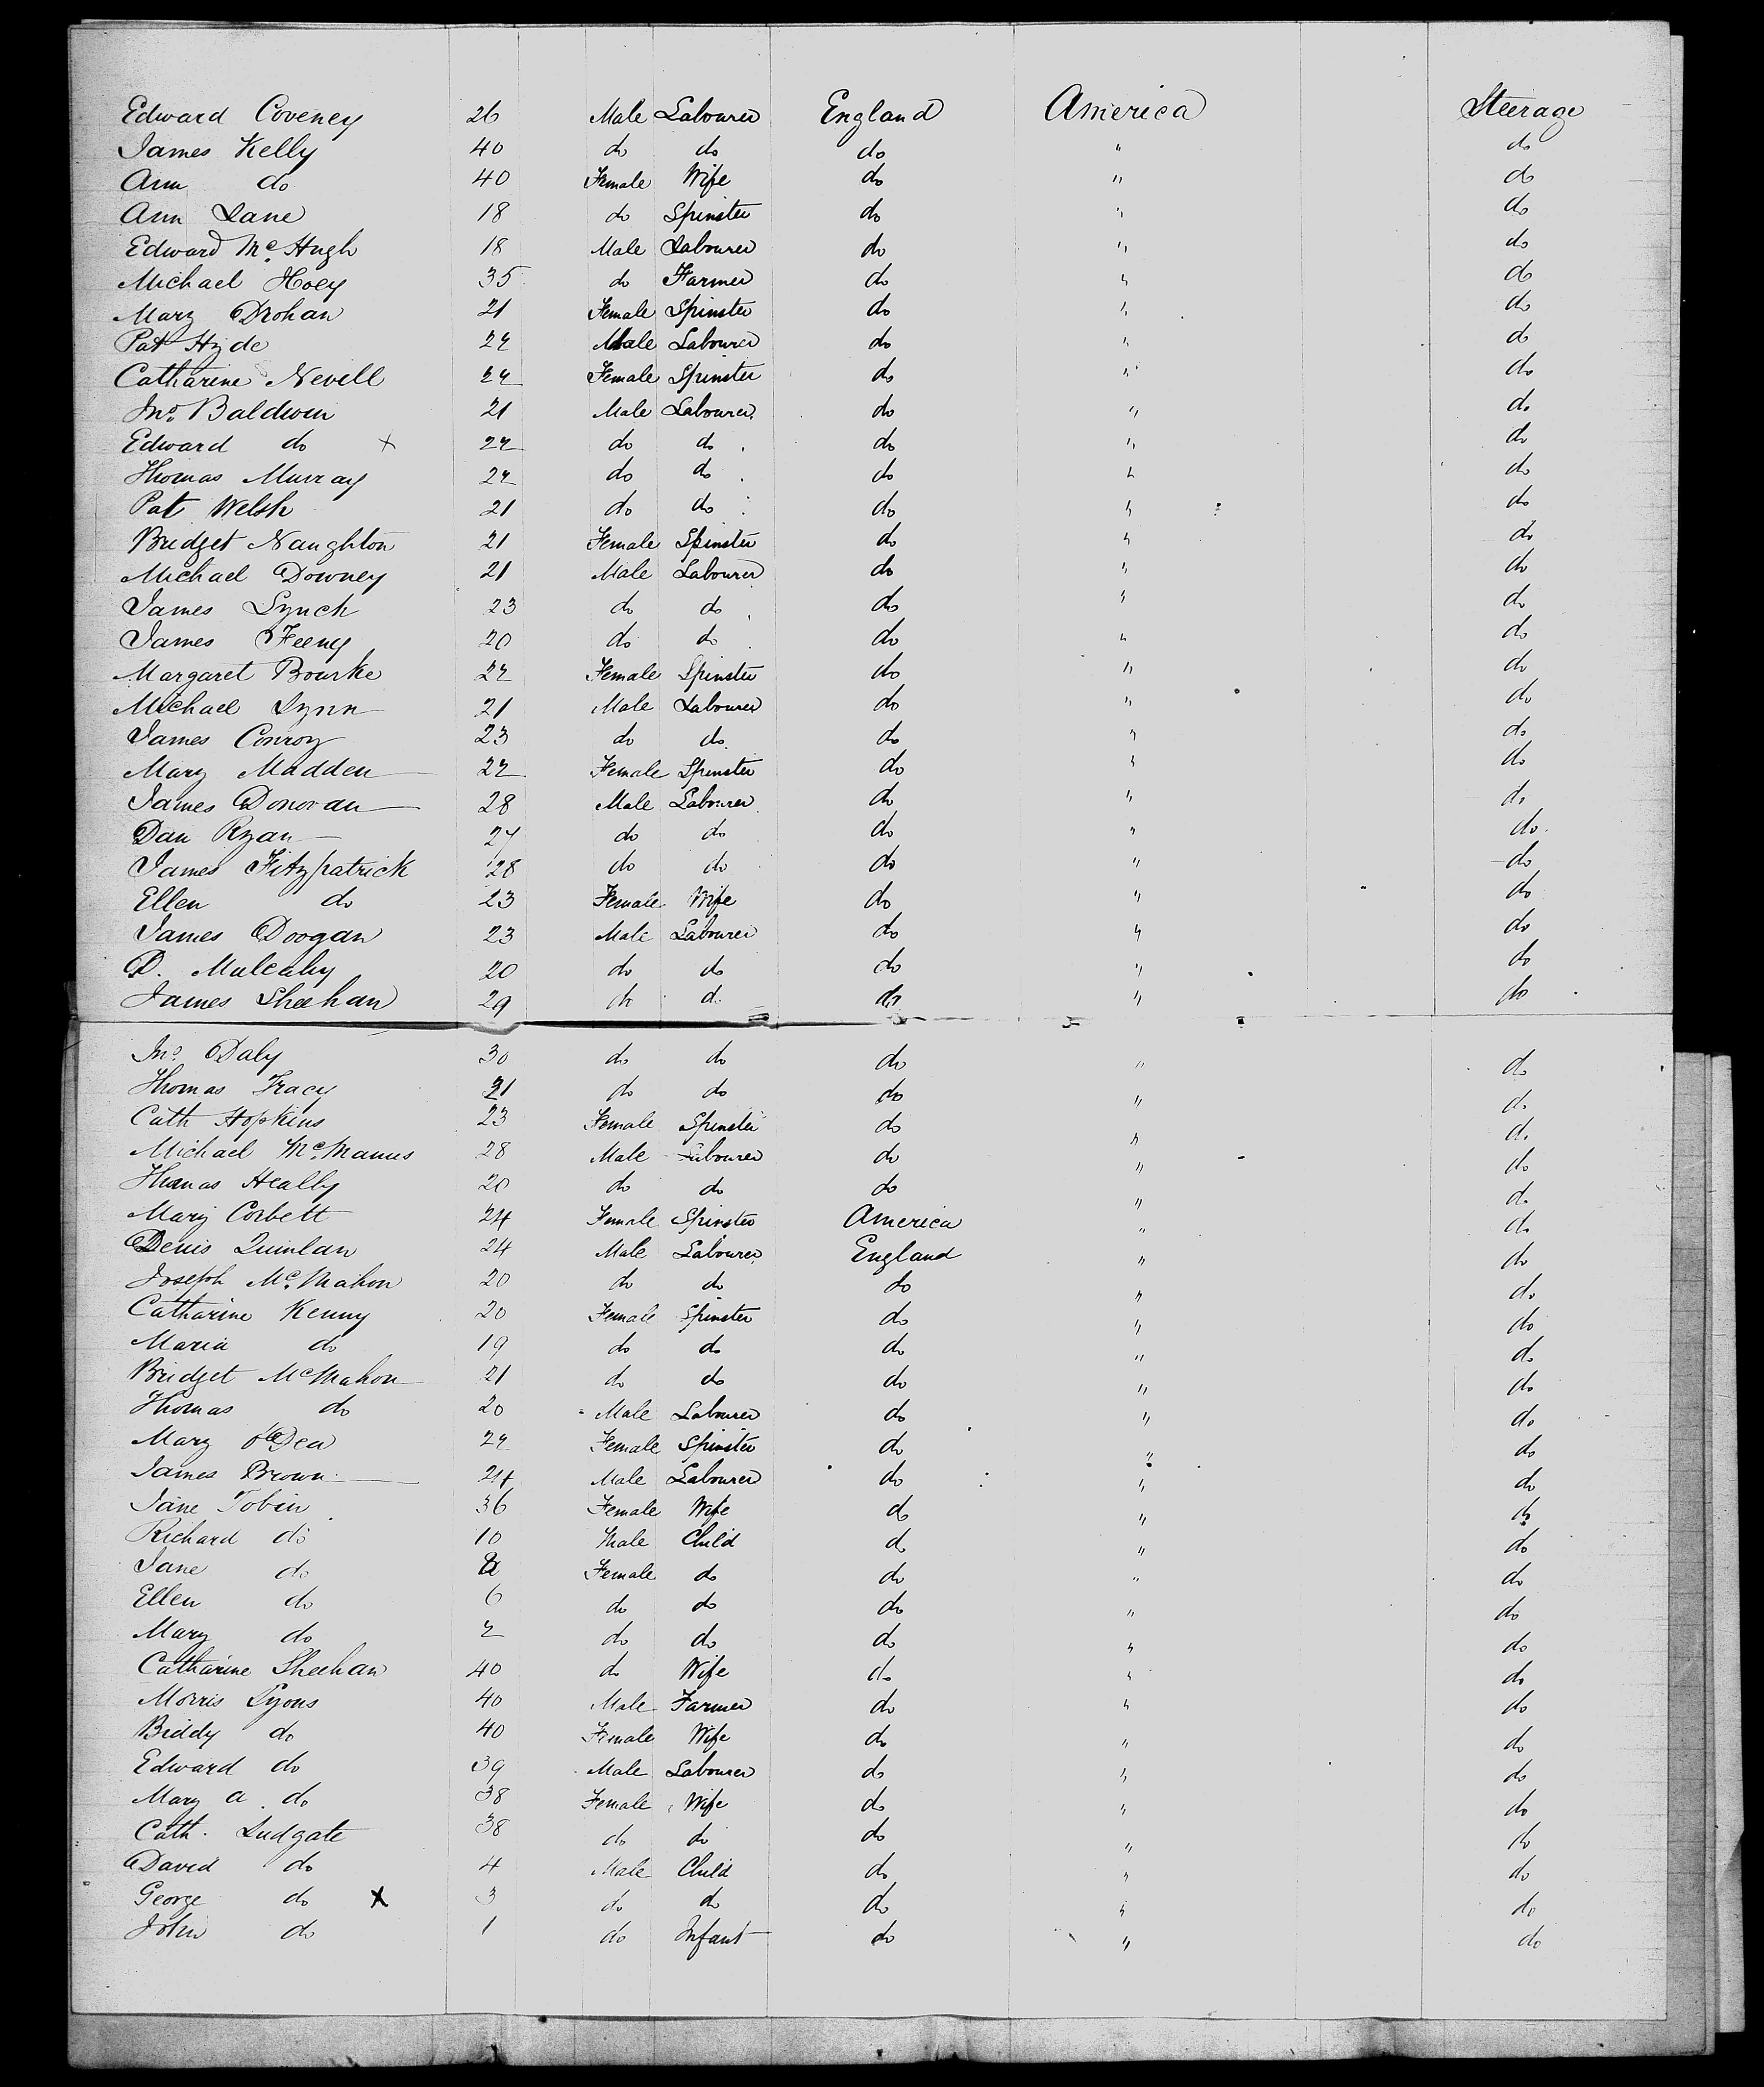 Edward Coveney 26 Male Labourer England America Steerage
James Kelly 40 do do do " do
Ann do 40 Female Wife do " do
Ann Lane 18 do Spinster do " do
Edward Mc Hugh 18 Male Labourer do " do
Michael Hoey 35 do Farmer do " do
Mary Drohan 21 Female Spinster do " do
Pat Hyde 22 Male Labourer do " do
Catharine Nevell 22 Female Spinster do " do
Jno. Baldwin 21 Male Labourer do " do
Edward do x 22 do do do " do
Thomas Murray 22 do do do " do
Pat Welsh 21 do do do " do
Bridget Naughton 21 Female Spinster do " do
Michael Downey 21 Male Labourer do " do
James Lynch 23 do do do " do
James Feeny 20 do do do " do
Margaret Bourke 22 Female Spinster do " do
Michael Lynn 21 Male Labourer do " do
James Conroy 23 do do do " do
Mary Madden 22 Female Spinster do " do
James Donovan 28 Male Labourer do " do
Dan Ryan do do do " do
James Fitzpatrick 28 do do do " do
Ellen do 23 Female Wife do " do
James Doogan 23 Male Labourer do " do
D. Mulcahy 20 do do do " do
James Sheehan 29 do do do " do
Jno. Daly 30 do do do " do
Thomas Tracy 21 do do do " do
Cath Hopkins 23 Female Spinster do " do
Michael McManus 28 Male Labourer do " do
Thomas Heally 20 do do do " do
Mary Corbett 24 Female Spinster America " do
Denis Quinlan 24 Male Labourer England " do
Joseph Mc Mahon 20 do do do " do
Catharine Kenny 20 Female Spinster do " do
Maria do 19 do do do " do
Bridget McMahon 21 do do do " do
Thomas do 20 Male Labourer do " do
Mary O'Dea 22 Female Spinster do " do
James Brown 24 Male Labourer do " do
Jane Tobin 36 Female Wife do " do
Richard do 10 Male Child do " do
Jane do Female do do " do
Ellen do 6 do do do " do
Mary do 2 do do do " do
Catharine Sheehan 40 do Wife do " do
Morris Lyons 40 Male Farmer do " do
Biddy do 40 Female Wife do " do
Edward do 39 Male Labourer do " do
Mary A. do 38 Female Wife do " do
Cath. Ludgate 38 do do do " do
David do 4 Male Child do " do
George do x 3 do do do " do
John do 1 do Infant do " do